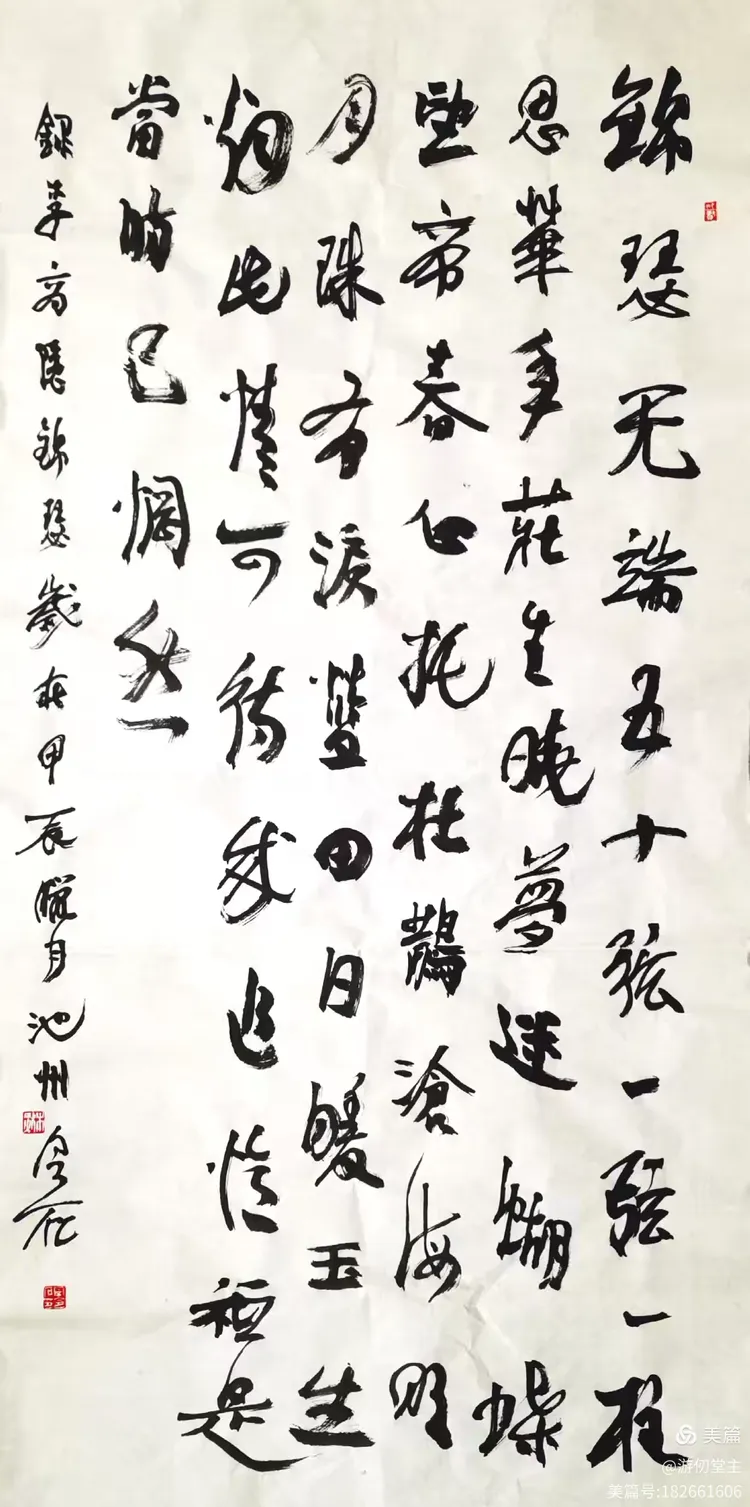 錦瑟无端五十弦一弦一柱
思華年莊生曉夢迷蝴蝶
望帝春心托杜鵑滄海明
月珠有淚藍田日暖玉生
烟此情可待成追憶祗是
當時已惘然
錄李商隱錦瑟歲在甲辰臘月池州
美篇
@游仞堂主
美篇号:182661606